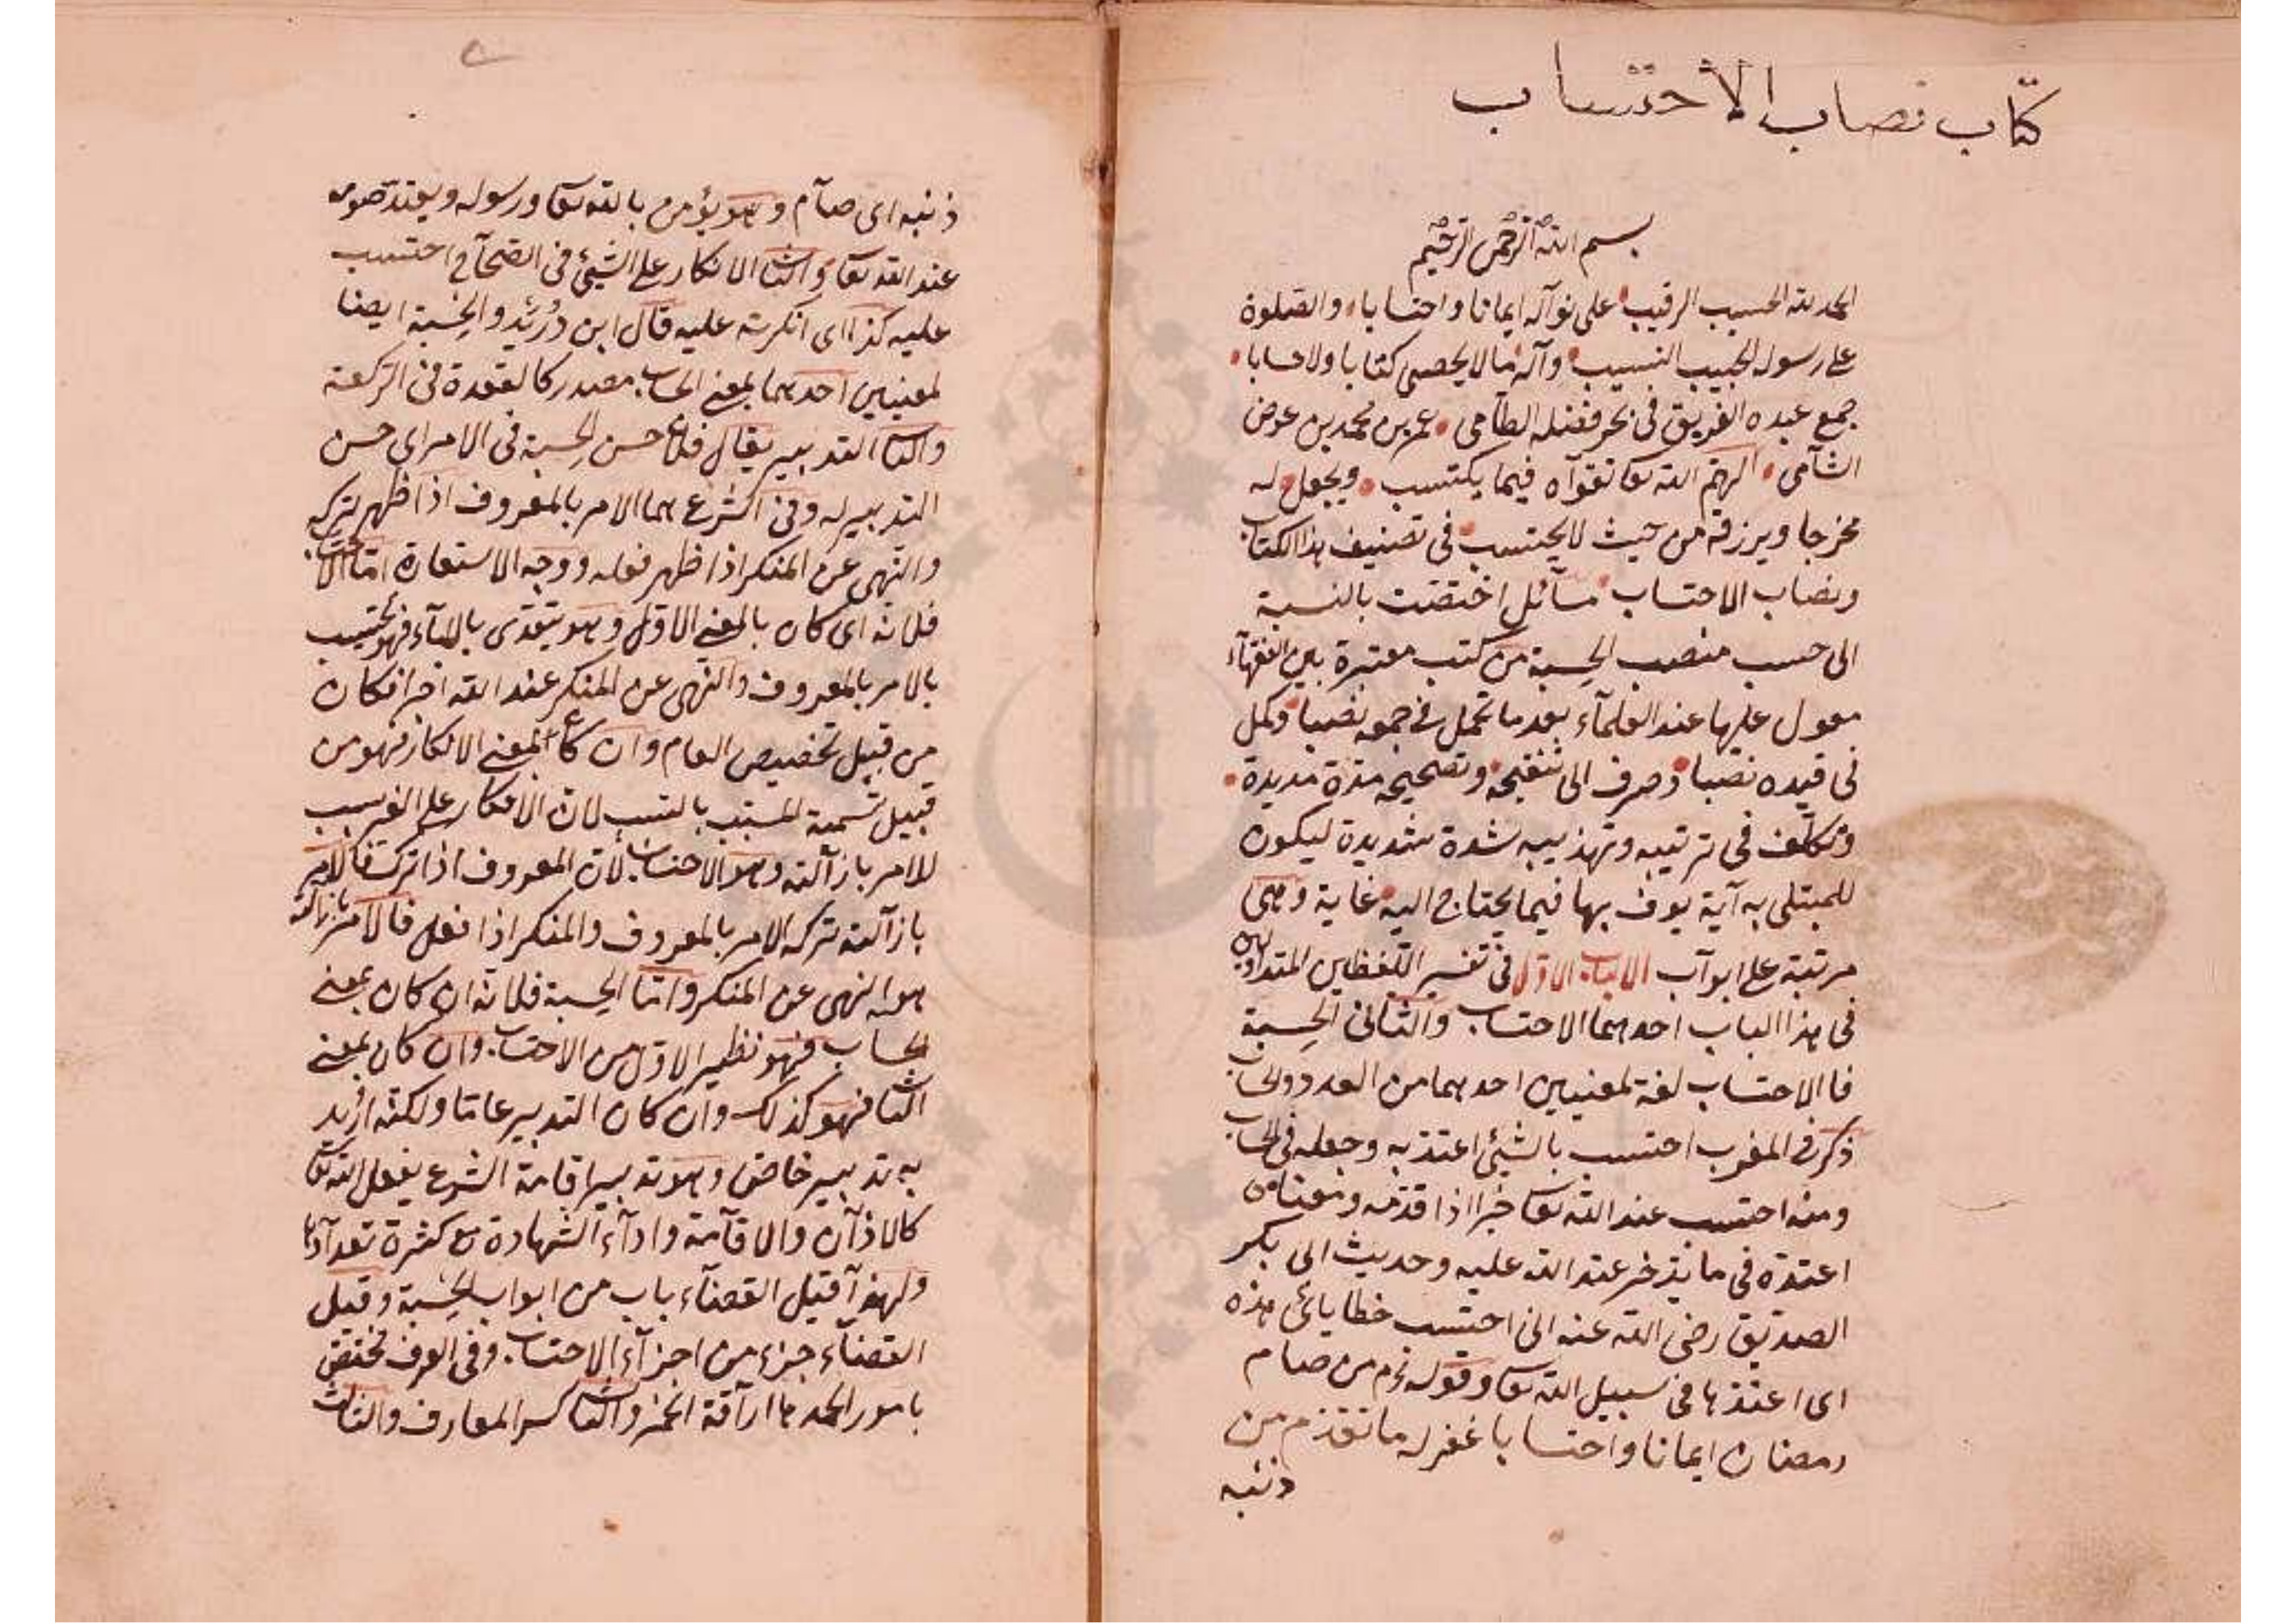 كتاب نصاب الاحتساب
بسم الله الرحمن الرحيم
الحمد لله الحسيب الرقيب على نوآله ايمانا واحتسابا والصلوة
على رسوله الحبيب النسيب وآله مالا يحصى كتابا ولا حسابا
جمع عبده الغريق فى بحر فضله الطآمى عمر بن محمد بن عوض
الشآمى اكرمهم الله تعا تقوآه فيما يكتسب ويجعل له
مخرجا ويرزقه من حيث لا يحتسب فى تصنيف هذا الكتاب
ونصاب الاحتساب مسآئل اختصت بالنسبة
الى حسب منصب الحسبة من كتب معتبرة بين الفقهآء
معول عليها عند العلمآء بعد ما تحمل فى جمعه نصيبا وكمل
فى قيده نصبا وصرف الى تنقيحه وتصحيحه مدة مديدة
وتكلف فى ترتيبه وتهذيبه شدة شديدة ليكون
للمبتلى به آية يوف بها فيما يحتاج اليه غاية وهى
مرتبة على ابوآب الباب الاول فى تفسير اللفظين المتداولين
فى هذا الباب احدهما الاحتساب والثانى الحسبة
فا الاحتساب لغة لمعنيين احدهما من العدد والحساب
ذكر فى المغرب احتسب بالشيئ اعتد به وجعله فى الحساب
ومنه احتسب عند الله تعا خيرا اذا قدمه ومعناه
اعتده فى ما يذخر عند الله عليه وحديث ابى بكر
الصديق رضى الله عنه انى احتسب خطا يائى هذه
اى اعتدها فى سبيل الله تعا وقوله عم من صام
رمضان ايمانا واحتسا با غفر له ما تقدم من
ذنبه
ذنبه اى صآم وهو يؤمن بالله تعا ورسوله ويعتد صومه
عند الله تعا والثا الانكار على الشيئ فى الصحآح احتسب
عليه كذا اى انكرته عليه قال ابن دريد والحسبة ايضا
لمعنيين احدهما بمعنى الحساب مصدر كالقعدة فى الركعة
والثا التدبير يقال فلان حسن الحسبة فى الامر اى حسن
التدبير له وفى الشرع هما الامر بالمعروف اذا ظهر تركه
والنهى عن المنكر اذا ظهر فعله ووجه الاستعارة اما الاحتساب
فلانه اى كان بالمعنى الاول وهو يتعدى بالبآء فهو يحتسب
بالامر بالمعروف والنهى عن المنكر عند الله اجرا فكان
من قبيل تخصيص العام وان كان المعنى الانكار فهو من
قبيل تسمية المسبب بالسبب لان الانكار على الغير سبب
للامر بازآلته وهو الاحتساب لان المعروف اذا ترك فالامر
بازآلته تركه الامر بالمعروف والمنكر اذا فعل فالامر بازالته
هو النهى عن المنكر واما الحسبة فلانه ان كان بمعنى
الحساب فهو نظير الاول من الاحتساب وان كان بمعنى
الثا فهو كذلك وان كان التدبير عاما ولكنه اريد
به تدبير خاص وهو تدبير اقامة الشرع بفعل الله تعا
كالاذآن والاقآمة وادآء الشهادة مع كثرة تعدآدها
ولهذآ قيل القضآء باب من ابواب الحسبة وقيل
القضآء جزء من اجزآء الاحتساب وفى العرف مختص
بامور احدها ارآقة الخمر والثا كسر المعازف والثالث